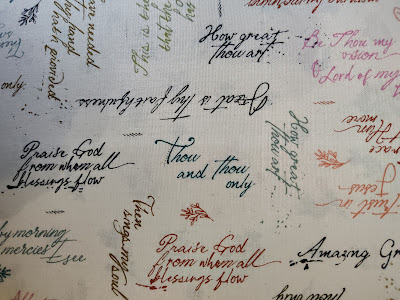 How great
thou art
Be Thou my
vision
Lord of my
thy hand
hath provided
This is
Great is thy faithfulness
How great
thou art
more
Praise God
from whom all
blessings flow
Thou
and thou
only
only
Trust in
Jesus
by morning
mercies I see
Then
sings my
soul
Praise God
from whom all
blessings flow
Amazing